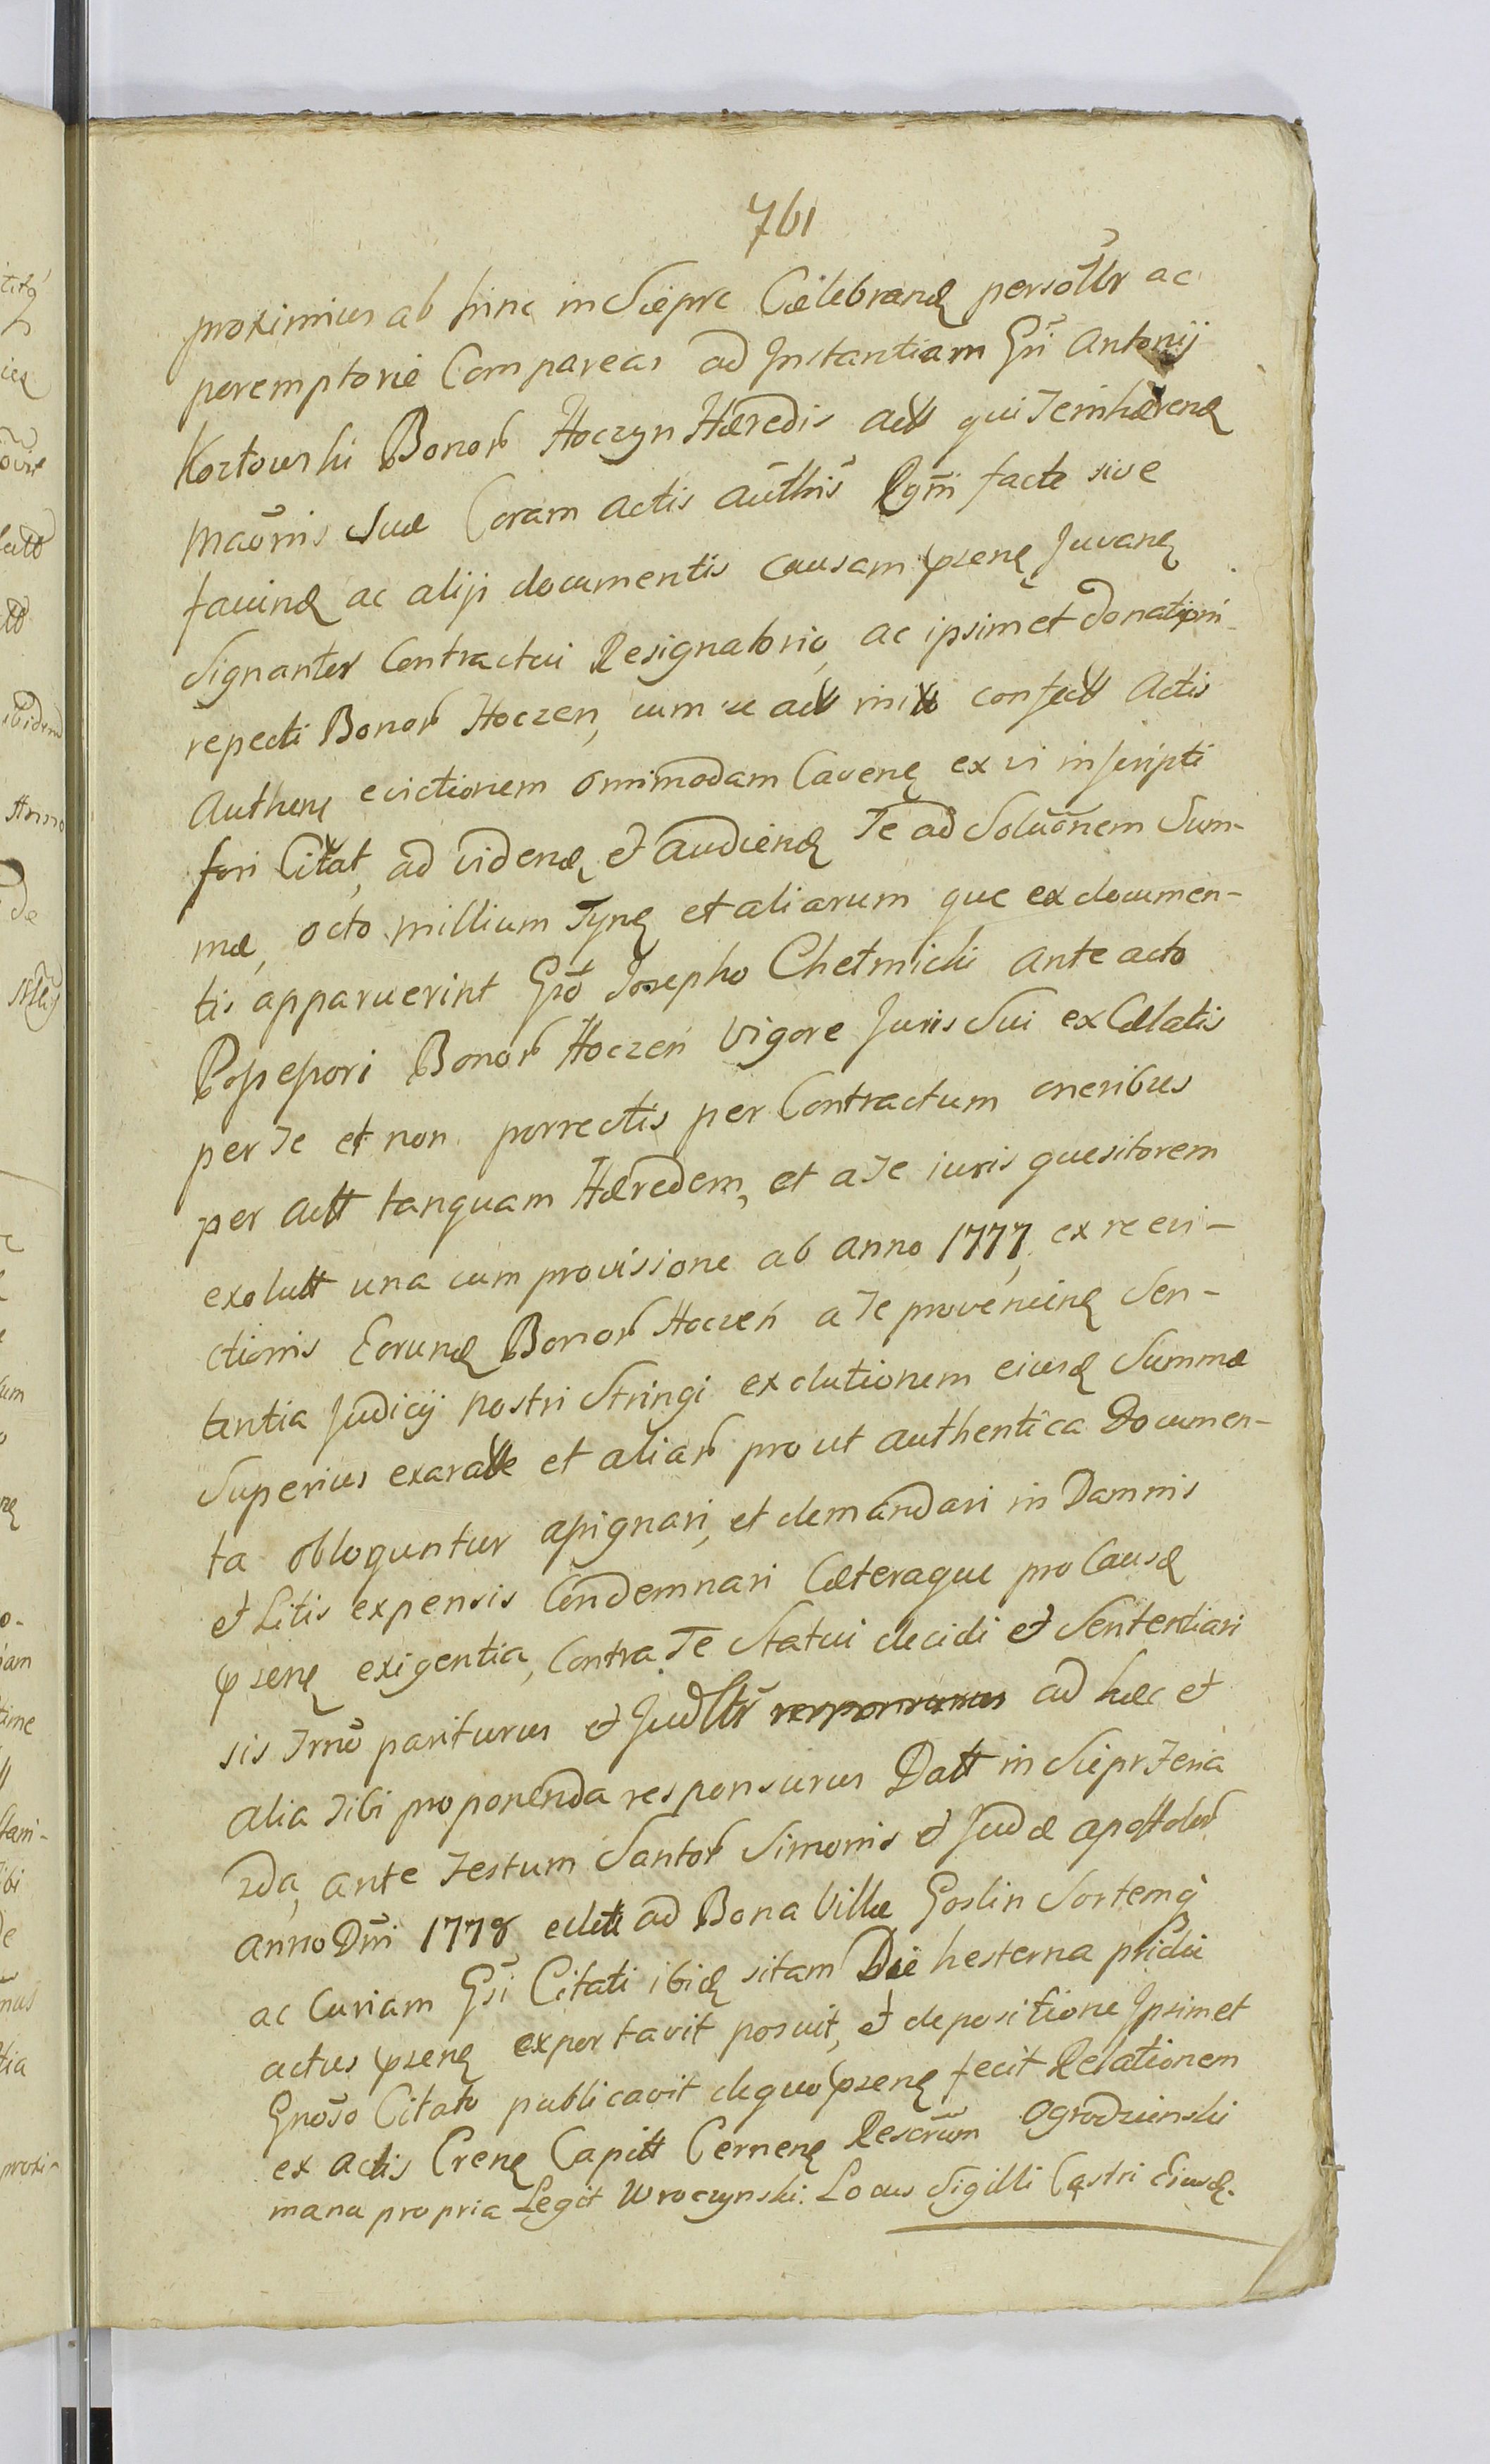 761
proximius ab hinc in Siepre Cælebranđ persoltr ac
peremptorie Compareas ad Instantiam Gsi Antonij
Kozłowski Bonor Hoczyn Hæredis actt qui Te inhærenđ
Maonis Suæ Coram actis authis Rgni facte sive
faciunđ ac alijs documentis causam psenę Juvanę
Signanter Contractui Resignatorio, ac ipsimet donationi
respecti Bonor Hoczen, cum se act confectt Actis
Authenę evictionem omnimodam Cavenę ex vi inscripti
fori Citat, ad videnđ et audienđ Te ad Soluõnem Sum-
mæ, octo millium Tynę et aliarum que ex documen-
tis apparuerint Gso Josepho Chełmicki ante acto
Possessori Bonor Hoczen Vigore Juris Sui ex Cælatis
per Te et non porrectis per Contractum oneribus
per actt tanquam Hæredem, et a Te iuris quesitorem
exolutt una cum provisione ab anno 1777, ex re evi-
ctionis Eorunđ Bonor Hoczen a Te proveniunę Sen-
tentia Judicij nostri Stringi exolutionem eiusđ Summæ
Superius exaratte et aliar prout authentica Documen-
ta obloquntur assignari, et demandari in Damnis
et Litis expensis Condemnari Cæteraque pro Causæ
psenę exigentia, Contra Te Statui decidi et Sententiari
sis Trno pariturus et Judltr ad hæc et
alia Tibi proponenda responsurus Datt in Siepr Feria
2da, ante Festum Santor Simonis et Judæ apostolor
anno Dni 1778 ad Bona Villæ Goslin Sortemq
ac Curiam Gsi Citati ibiđ sitam Die hesterna pridie
actus psenę exportavit posuit, et depositione Ipsimet
Gnoso Citato publicavit de quo psenę fecit Relationem
ex actis Crenę Capitt Cernenę Rescrum Ogrodzienski
manu propria Legit Wroczynski. Locus Sigilli Castri Eiusđ.